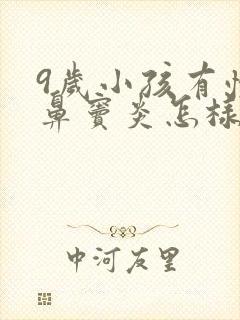 9歲小孩有
鼻竇炎怎樣
中河友里